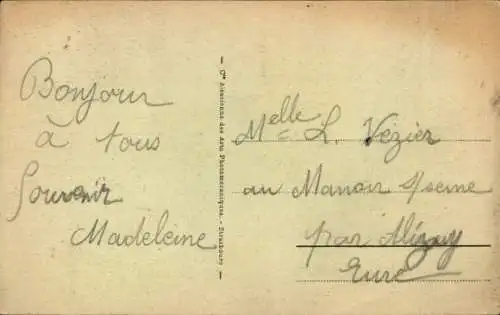 Bonjour
à tous
Souvenir
Madeleine
Cie Alsacienne des Arts Photomécaniques. - Strasbourg
Melle L. Vezier
au Manoir s/seine
par Alizay
Eure